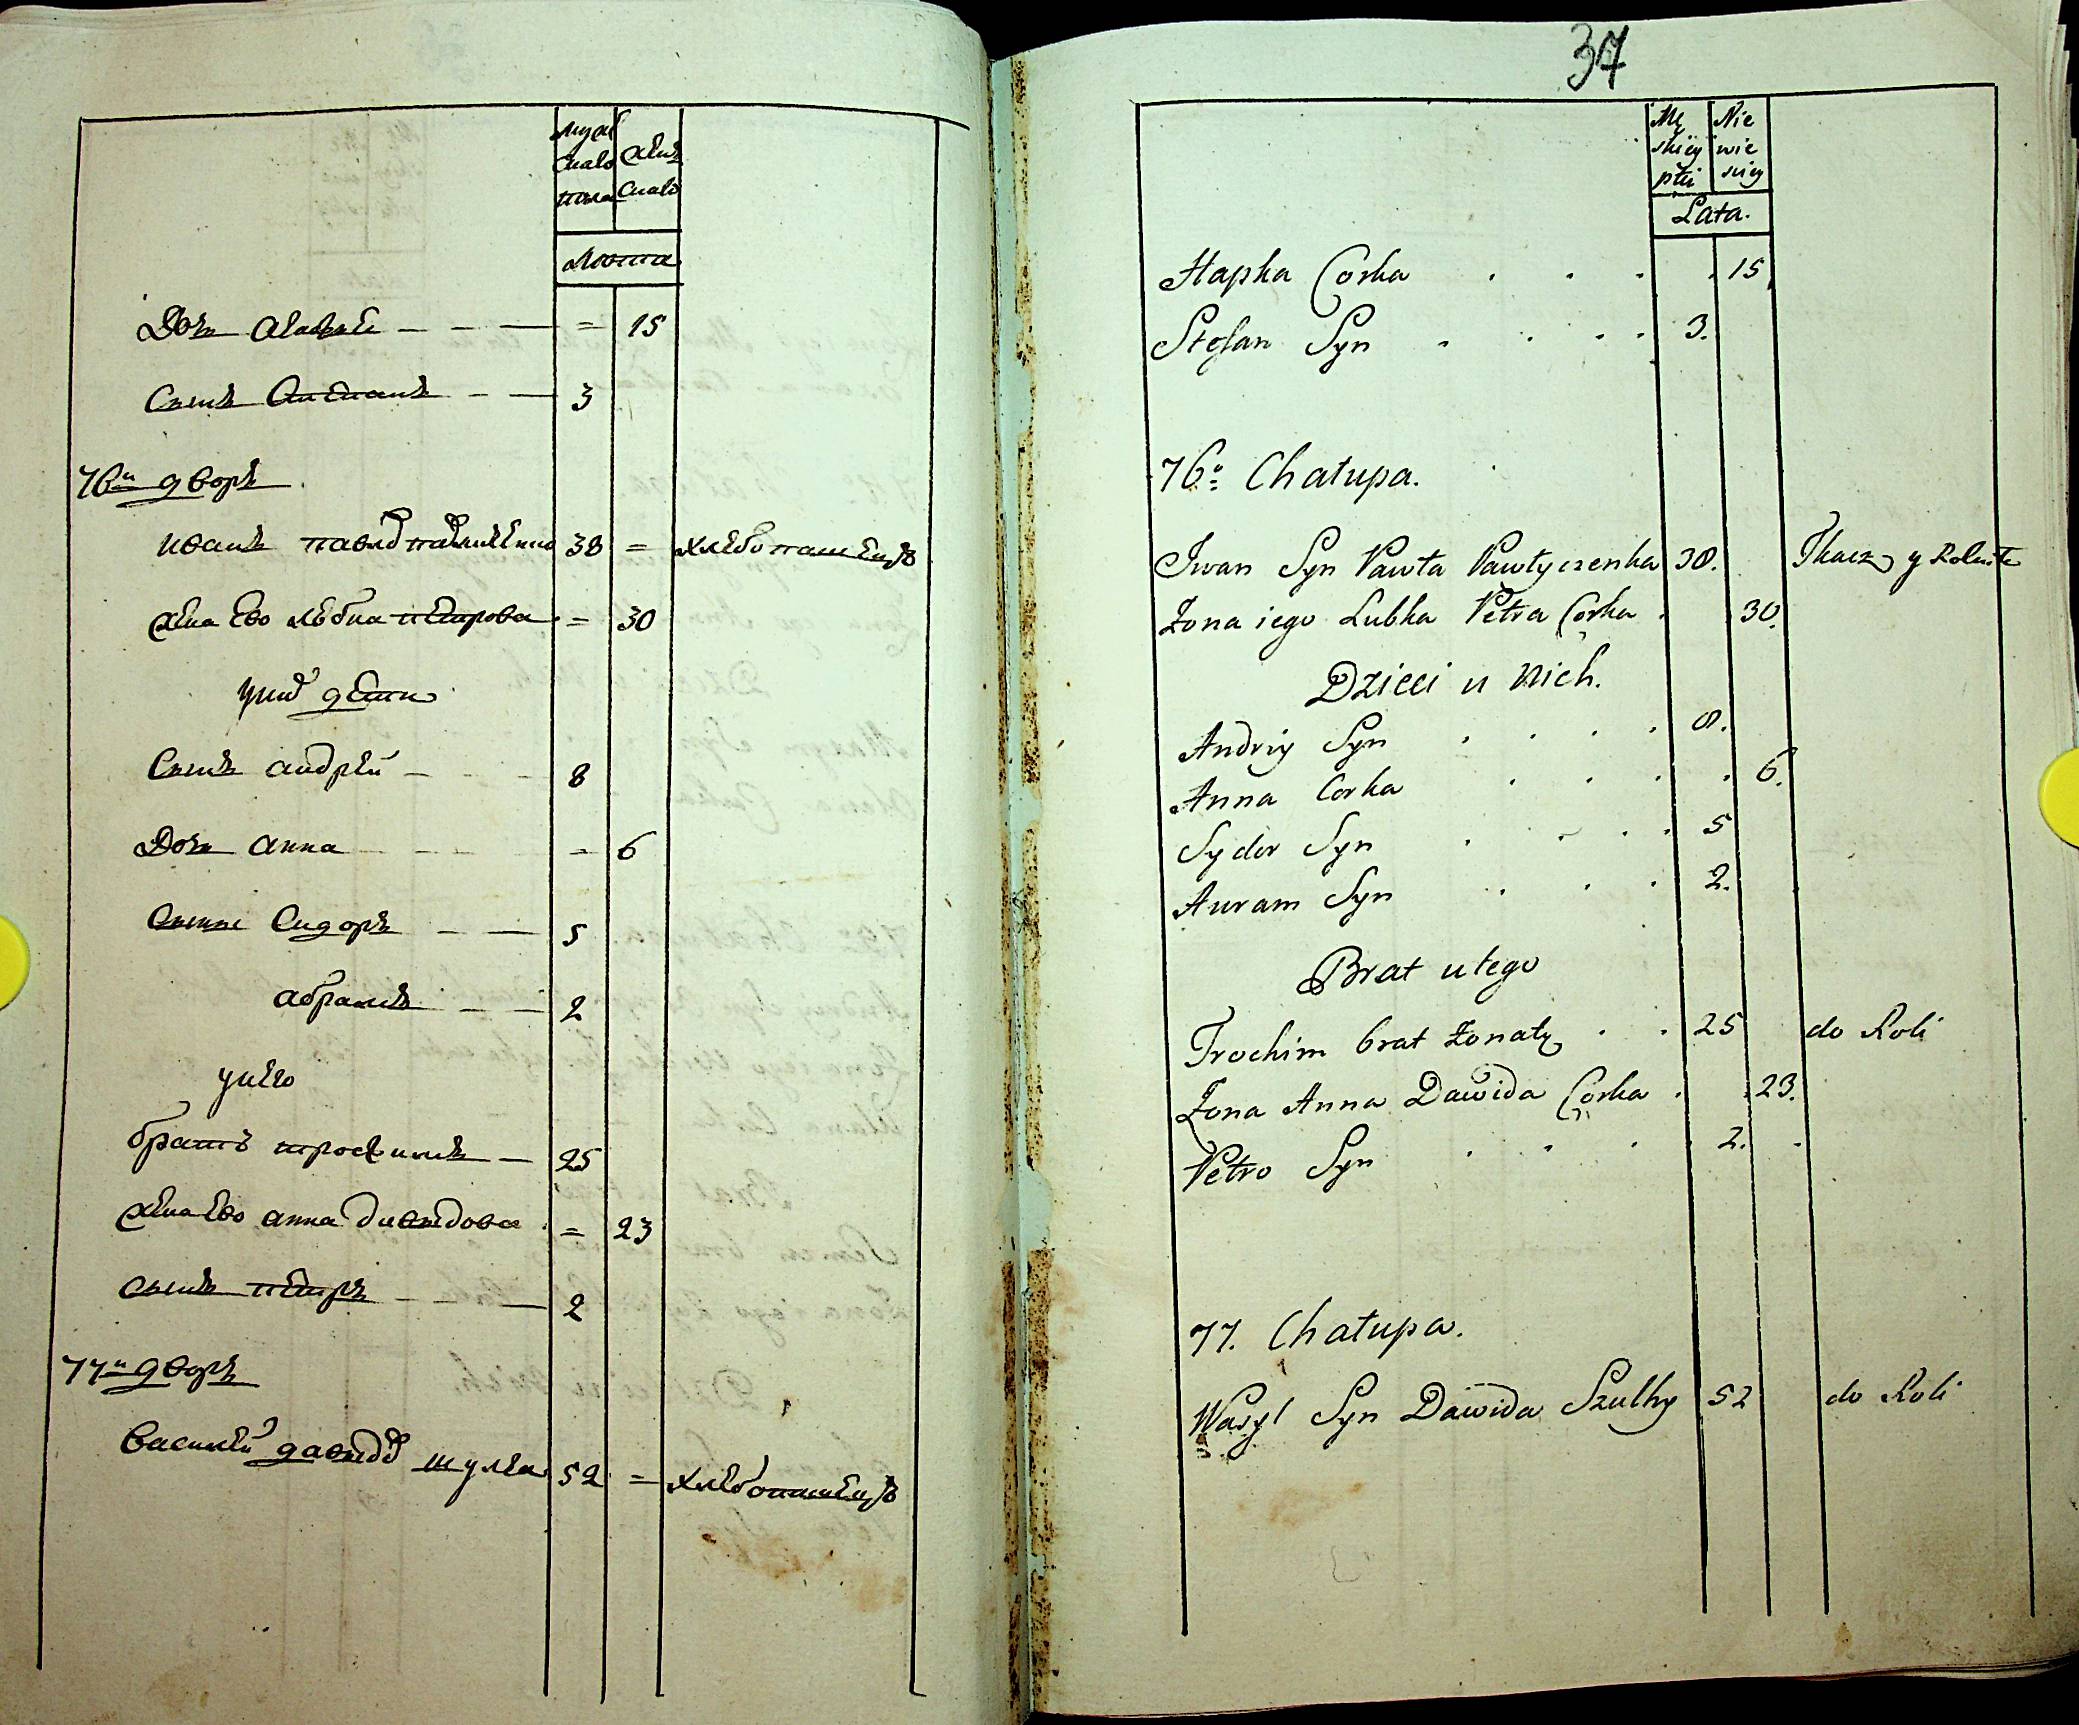 Мужеска пола
женска
Лѣта
Дочь Агафия 15
Сынъ Степанъ 3
76й дворъ
Иванъ Павлов Павличенко 38 = хлебопашецъ
Жена ево Любка Петрова = 30
у них дети
Сынъ Андрей 8
Дочь Анна = 6
Сыны Сидоръ 5
Абрамъ 2
у него
братъ Трофимъ 25
Жена ево Анна Давидова = 23
Сынъ Петръ 2
77й дворъ
Василей Давидов Шулка 52 = хлебопашецъ
37
Mę skiey płci
Nie wie sciey
Lata.
Hapka Corka 15
Stefan Syn 3.
76º Chałupa.
Iwan Syn Pawła Pawłyczenka 38. Tkacz y Rolnik
Żona iego Lubka Petra Corka 30.
Dzieci u nich.
Andriy Syn 8.
Anna Corka 6.
Sydor Syn 5
Auram Syn 2.
Brat u tego
Trochim brat żonaty 25 do Roli
Żona Anna Dawida Corka 23.
Petro Syn 2.
77. Chałupa.
Wasyl Syn Dawida Szulhy 52 do Roli